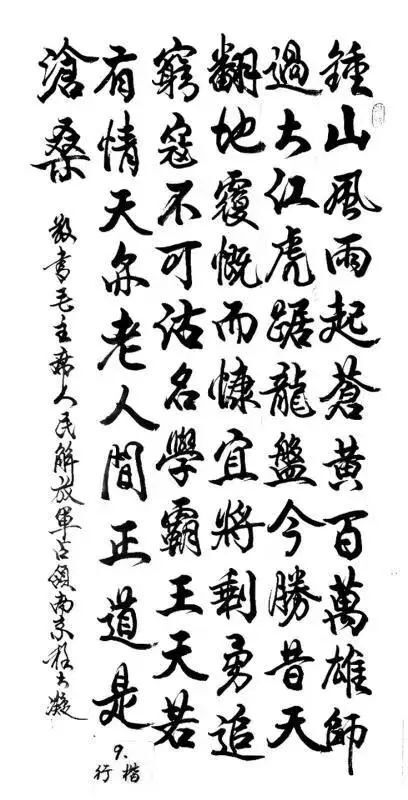 鍾山風雨起蒼黃百萬雄師
過大江虎踞龍盤今勝昔天
翻地覆慨而慷宜將剩勇追
窮寇不可沽名學霸王天若
有情天亦老人間正道是
滄桑
敬書毛主席人民解放軍占領南京
9.
行楷